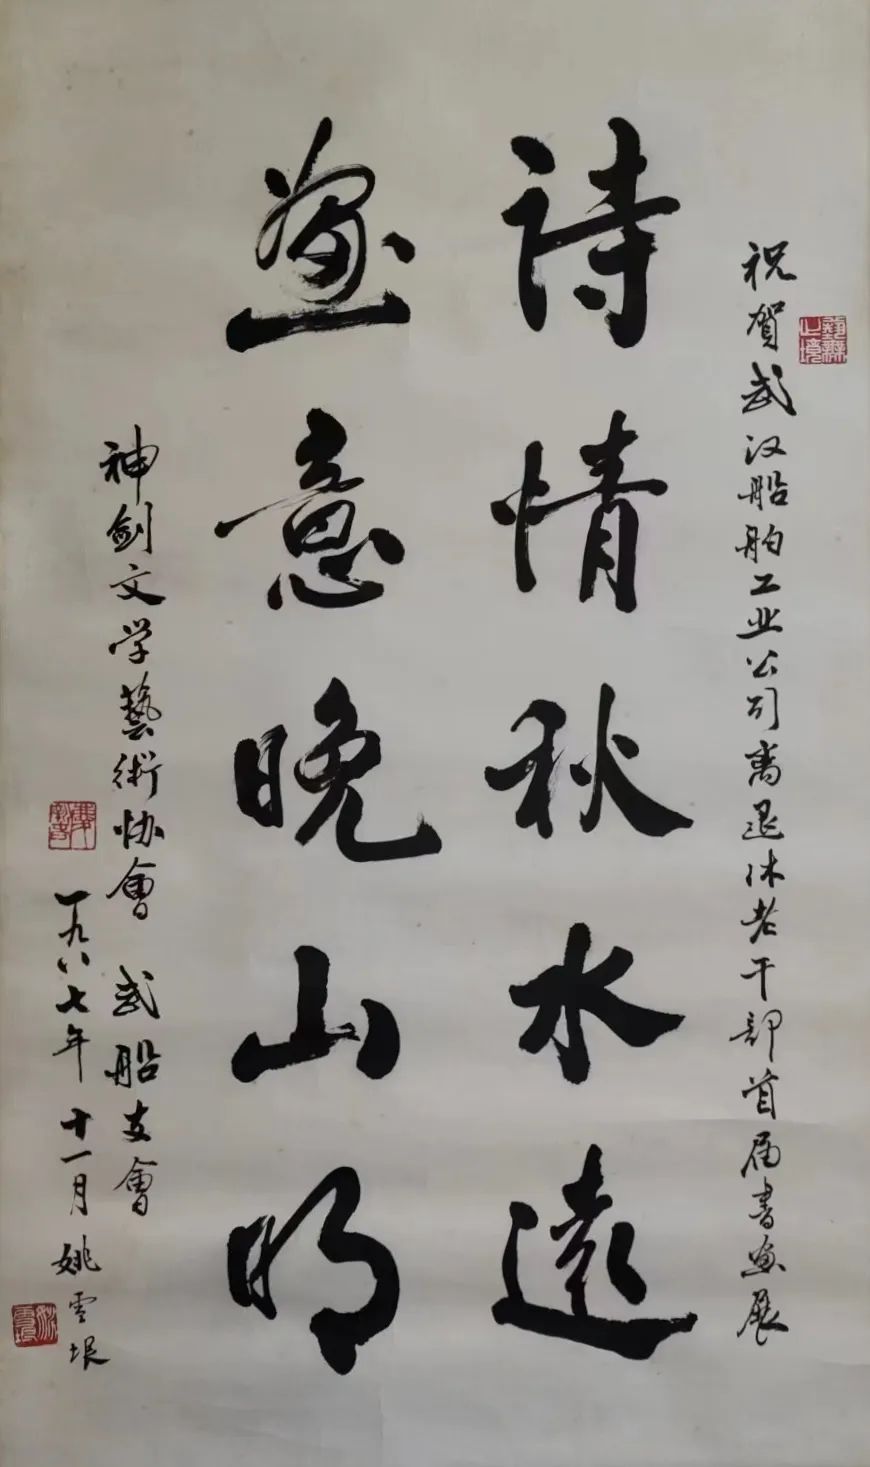 祝贺武汉船舶工业公司离退休老干部首届书画展
詩情秋水遠
畫意晚山明
神剑文学藝術协會 武船支會
一九八七年十一月 姚雪垠